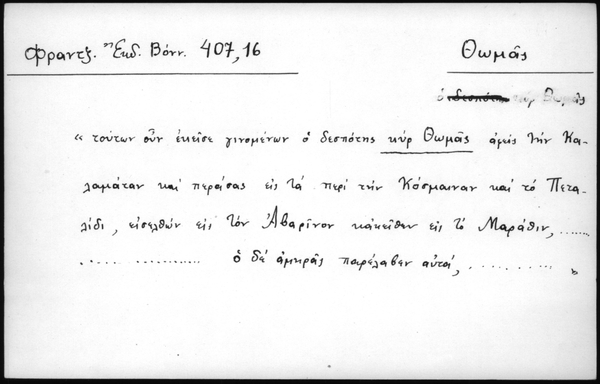 Φραντζ. Ἔκδ. Βόνν. 407,16
Θωμᾶς
« τούτων οὖν ἐκεῖσε γινομένων ὁ δεσπότης κύρ Θωμᾶς ἀφείς τήν Κα-
λαμάταν καί περάσας εἰς τά περί τήν Κόσμαιναν καί τό Πετα-
λίδι, εἰσελθών εἰς τόν Ἀβαρῖνον κἀκεῖθεν εἰς τό Μαράθιν, ........
.. ....... ............... ὁ δέ ἀμηρᾶς παρέλαβεν αὐτά, ............ »